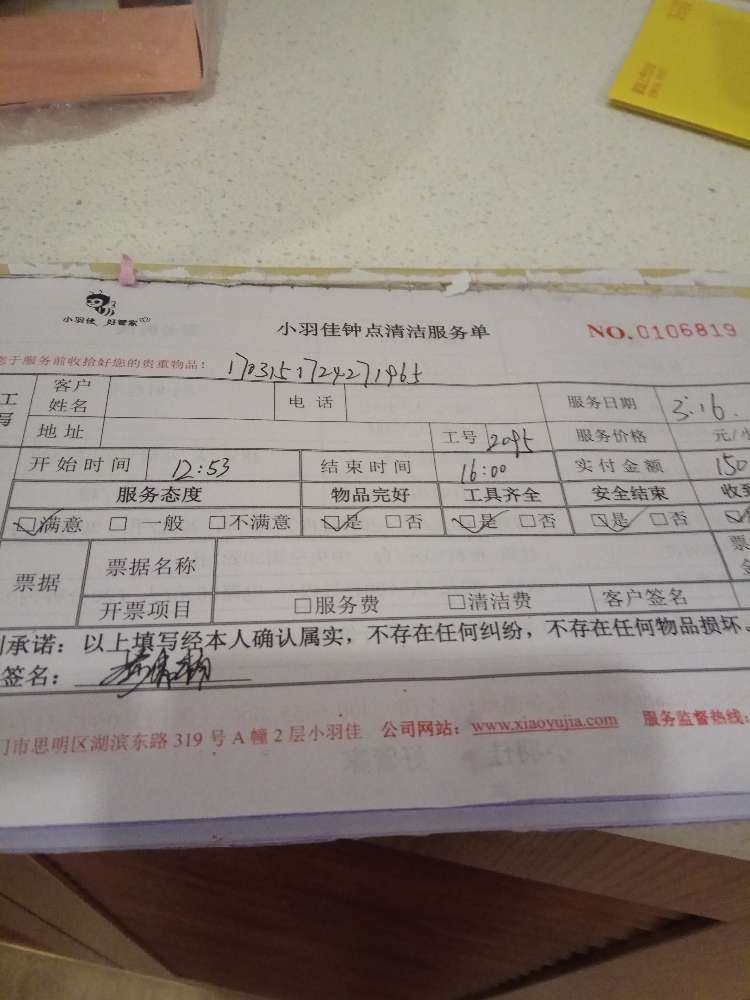 小羽佳 好管家
小羽佳钟点清洁服务单
NO.0106819
于服务前收拾好您的贵重物品！
1703151724271965
客户姓名 电话 服务日期 3.16.
地址 工号 2095 服务价格 元/
开始时间 12:53 结束时间 16:00 实付金额 150
服务态度 物品完好 工具齐全 安全结束 收
☑满意 □一般 □不满意 ☑是 □否 ☑是 □否 ☑是 □否
票据 票据名称 票
开票项目 □服务费 □清洁费 客户签名
承诺：以上填写经本人确认属实，不存在任何纠纷，不存在任何物品损坏。
签名：
门市思明区湖滨东路 319 号 A 幢 2 层小羽佳 公司网站：www.xiaoyujia.com 服务监督热线：